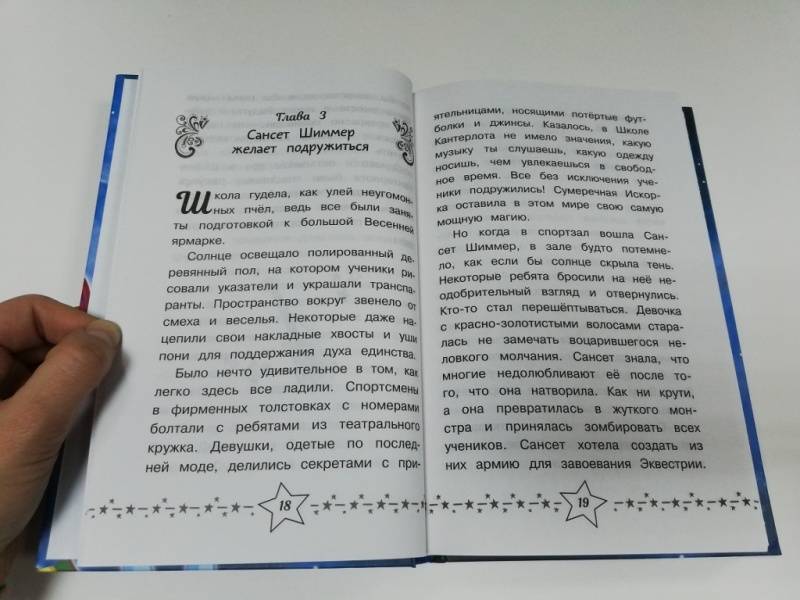 Глава 3
Сансет Шиммер
желает подружиться
Школа гудела, как улей неугомон-
ных пчёл, ведь все были заня-
ты подготовкой к большой Весенней
ярмарке.
Солнце освещало полированный де-
ревянный пол, на котором ученики ри-
совали указатели и украшали транспа-
ранты. Пространство вокруг звенело от
смеха и веселья. Некоторые даже на-
цепили свои накладные хвосты и уши
пони для поддержания духа единства.
Было нечто удивительное в том, как
легко здесь все ладили. Спортсмены
в фирменных толстовках с номерами
болтали с ребятами из театрального
кружка. Девушки, одетые по послед-
ней моде, делились секретами с при-
18
ятельницами, носящими потёртые фут-
болки и джинсы. Казалось, в Школе
Кантерлота не имело значения, какую
музыку ты слушаешь, какую одежду
носишь, чем увлекаешься в свобод-
ное время. Все без исключения уче-
ники подружились! Сумеречная Искор-
ка оставила в этом мире свою самую
мощную магию.
Но когда в спортзал вошла Сан-
сет Шиммер, в зале будто потемне-
ло, как если бы солнце скрыла тень.
Некоторые ребята бросили на неё не-
одобрительный взгляд и отвернулись.
Кто-то стал перешёптываться. Девочка
с красно-золотистыми волосами стара-
лась не замечать воцарившегося не-
ловкого молчания. Сансет знала, что
многие недолюбливают её после то-
го, что она натворила. Как ни крути,
а она превратилась в жуткого мон-
стра и принялась зомбировать всех
учеников. Сансет хотела создать из
них армию для завоевания Эквестрии.
19